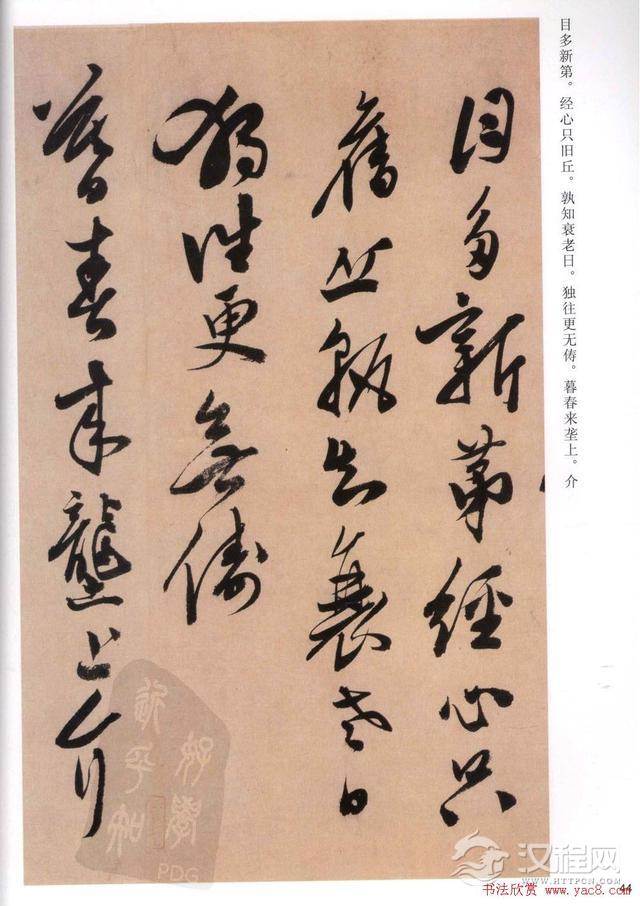 目多新第。经心只旧丘。孰知衰老日。独往更无俦。暮春来垄上。介
目多新第經心只
舊丘孰知衰老日
獨往更無儔
暮春來壟上介
好學
近乎知
PDG
汉程网
HTTPCN.COM
44
书法欣赏 www.yac8.com